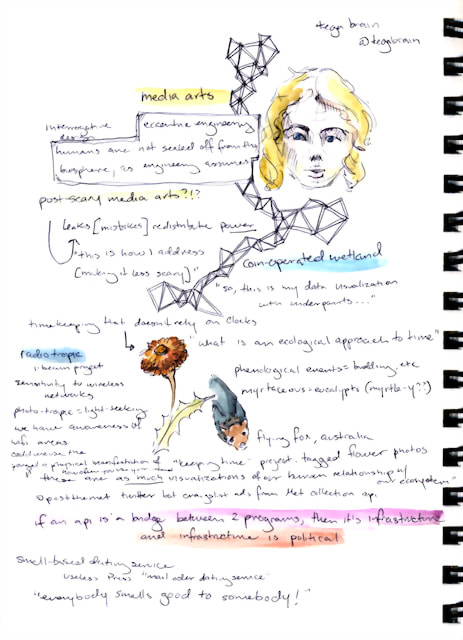 tega brain
@tegabrain
media arts
eccentric engineering
humans are not sealed off from the
biosphere, as engineering assumes
post scary media arts?!?
leaks [mistakes] redistribute power
"this is how I address
[making it less scary]"
coin-operated wetland
"so, this is my data visualization
with underpants..."
timekeeping that doesn't rely on clocks
"what is an ecological approach to time"
radiotropic
sensitivity to wireless
networks
photo-tropic = light-seeking
we have awareness of
wifi areas
phenological events = budding, etc
myrtaceous = eucalypts (myrtle-y??)
flying fox, australia
"keeping time" project. tagged flower photos
these are as much visualizations of our human relationship w/
our ecosystem"
twitter bot craigslist ads from Met collection api
if an api is a bridge between 2 programs, then it's infrastructure
and infrastructure is political
smell-based dating service
useless press "mail odor dating service"
"everybody smells good to somebody!"